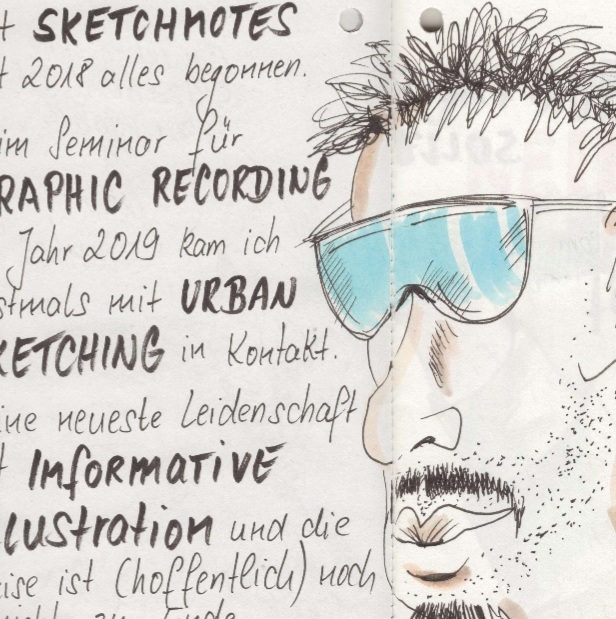 t SKETCHNOTES
t 2018 alles begonnen.
im Seminar für
RAPHIC RECORDING
Jahr 2019 kam ich
stmals mit URBAN
KETCHING in Kontakt.
ine neueste Leidenschaft
t INFORMATIVE
llustration und die
eise ist (hoffentlich) noch
zu Ende